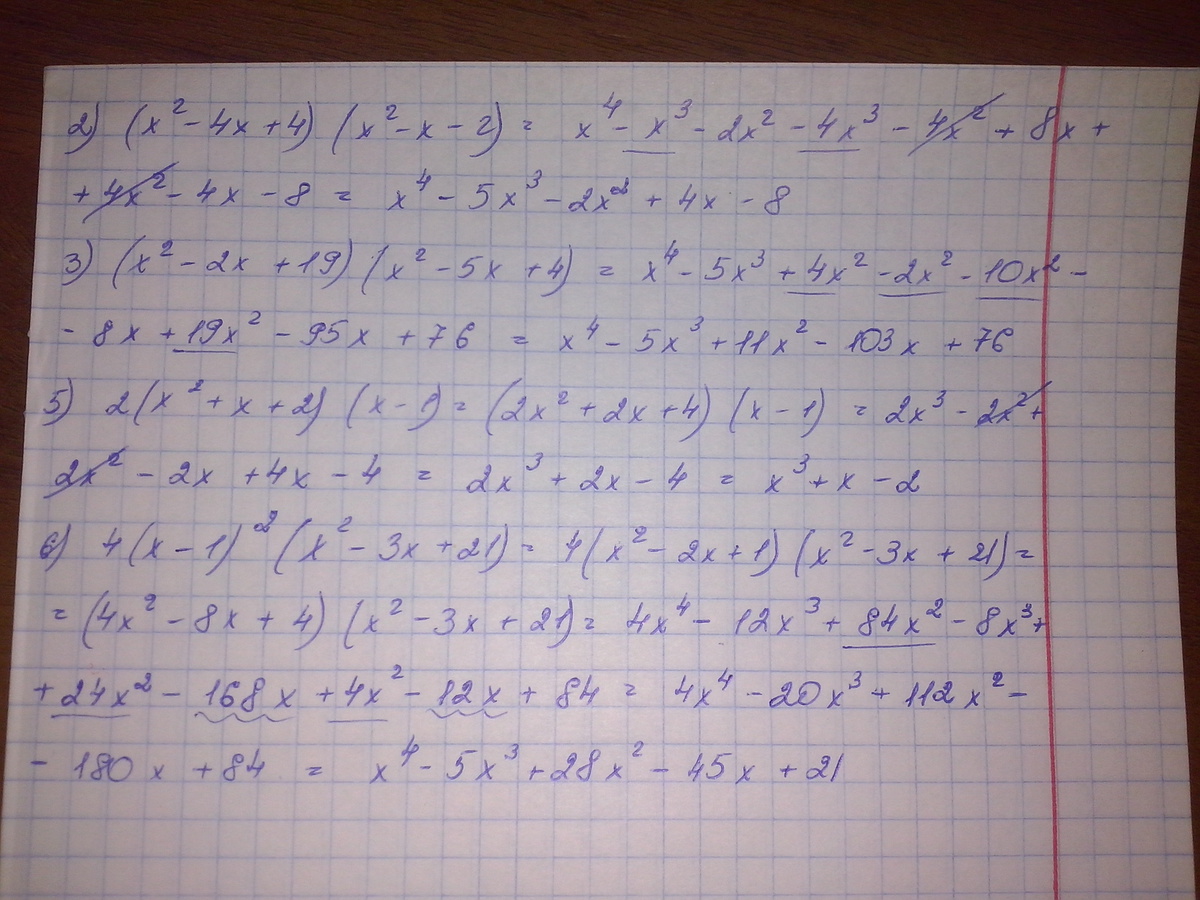 2) (x² - 4x + 4) (x² - x - 2) = x⁴ - x³ - 2x² - 4x³ - 4x² + 8x +
+ 4x² - 4x - 8 = x⁴ - 5x³ - 2x² + 4x - 8
3) (x² - 2x + 19) (x² - 5x + 4) = x⁴ - 5x³ + 4x² - 2x² - 10x² -
- 8x + 19x² - 95x + 76 = x⁴ - 5x³ + 11x² - 103x + 76
5) 2(x² + x + 2) (x - 1) = (2x² + 2x + 4) (x - 1) = 2x³ - 2x² +
2x² - 2x + 4x - 4 = 2x³ + 2x - 4 = x³ + x - 2
6) 4(x - 1)² (x² - 3x + 21) = 4(x² - 2x + 1) (x² - 3x + 21) =
= (4x² - 8x + 4) (x² - 3x + 21) = 4x⁴ - 12x³ + 84x² - 8x³ +
+ 24x² - 168x + 4x² - 12x + 84 = 4x⁴ - 20x³ + 112x² -
- 180x + 84 = x⁴ - 5x³ + 28x² - 45x + 21